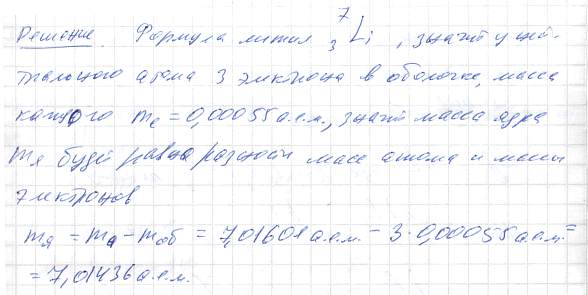 Решение. Формула лития ⁷₃Li, значит у ней-
трального атома 3 электрона в оболочке, масса
каждого mₑ = 0,00055 а.е.м., значит масса ядра
mя будет равна разности масс атома и массы
электронов
mя = mа − mоб = 7,01601 а.е.м. − 3·0,00055 а.е.м. =
= 7,01436 а.е.м.